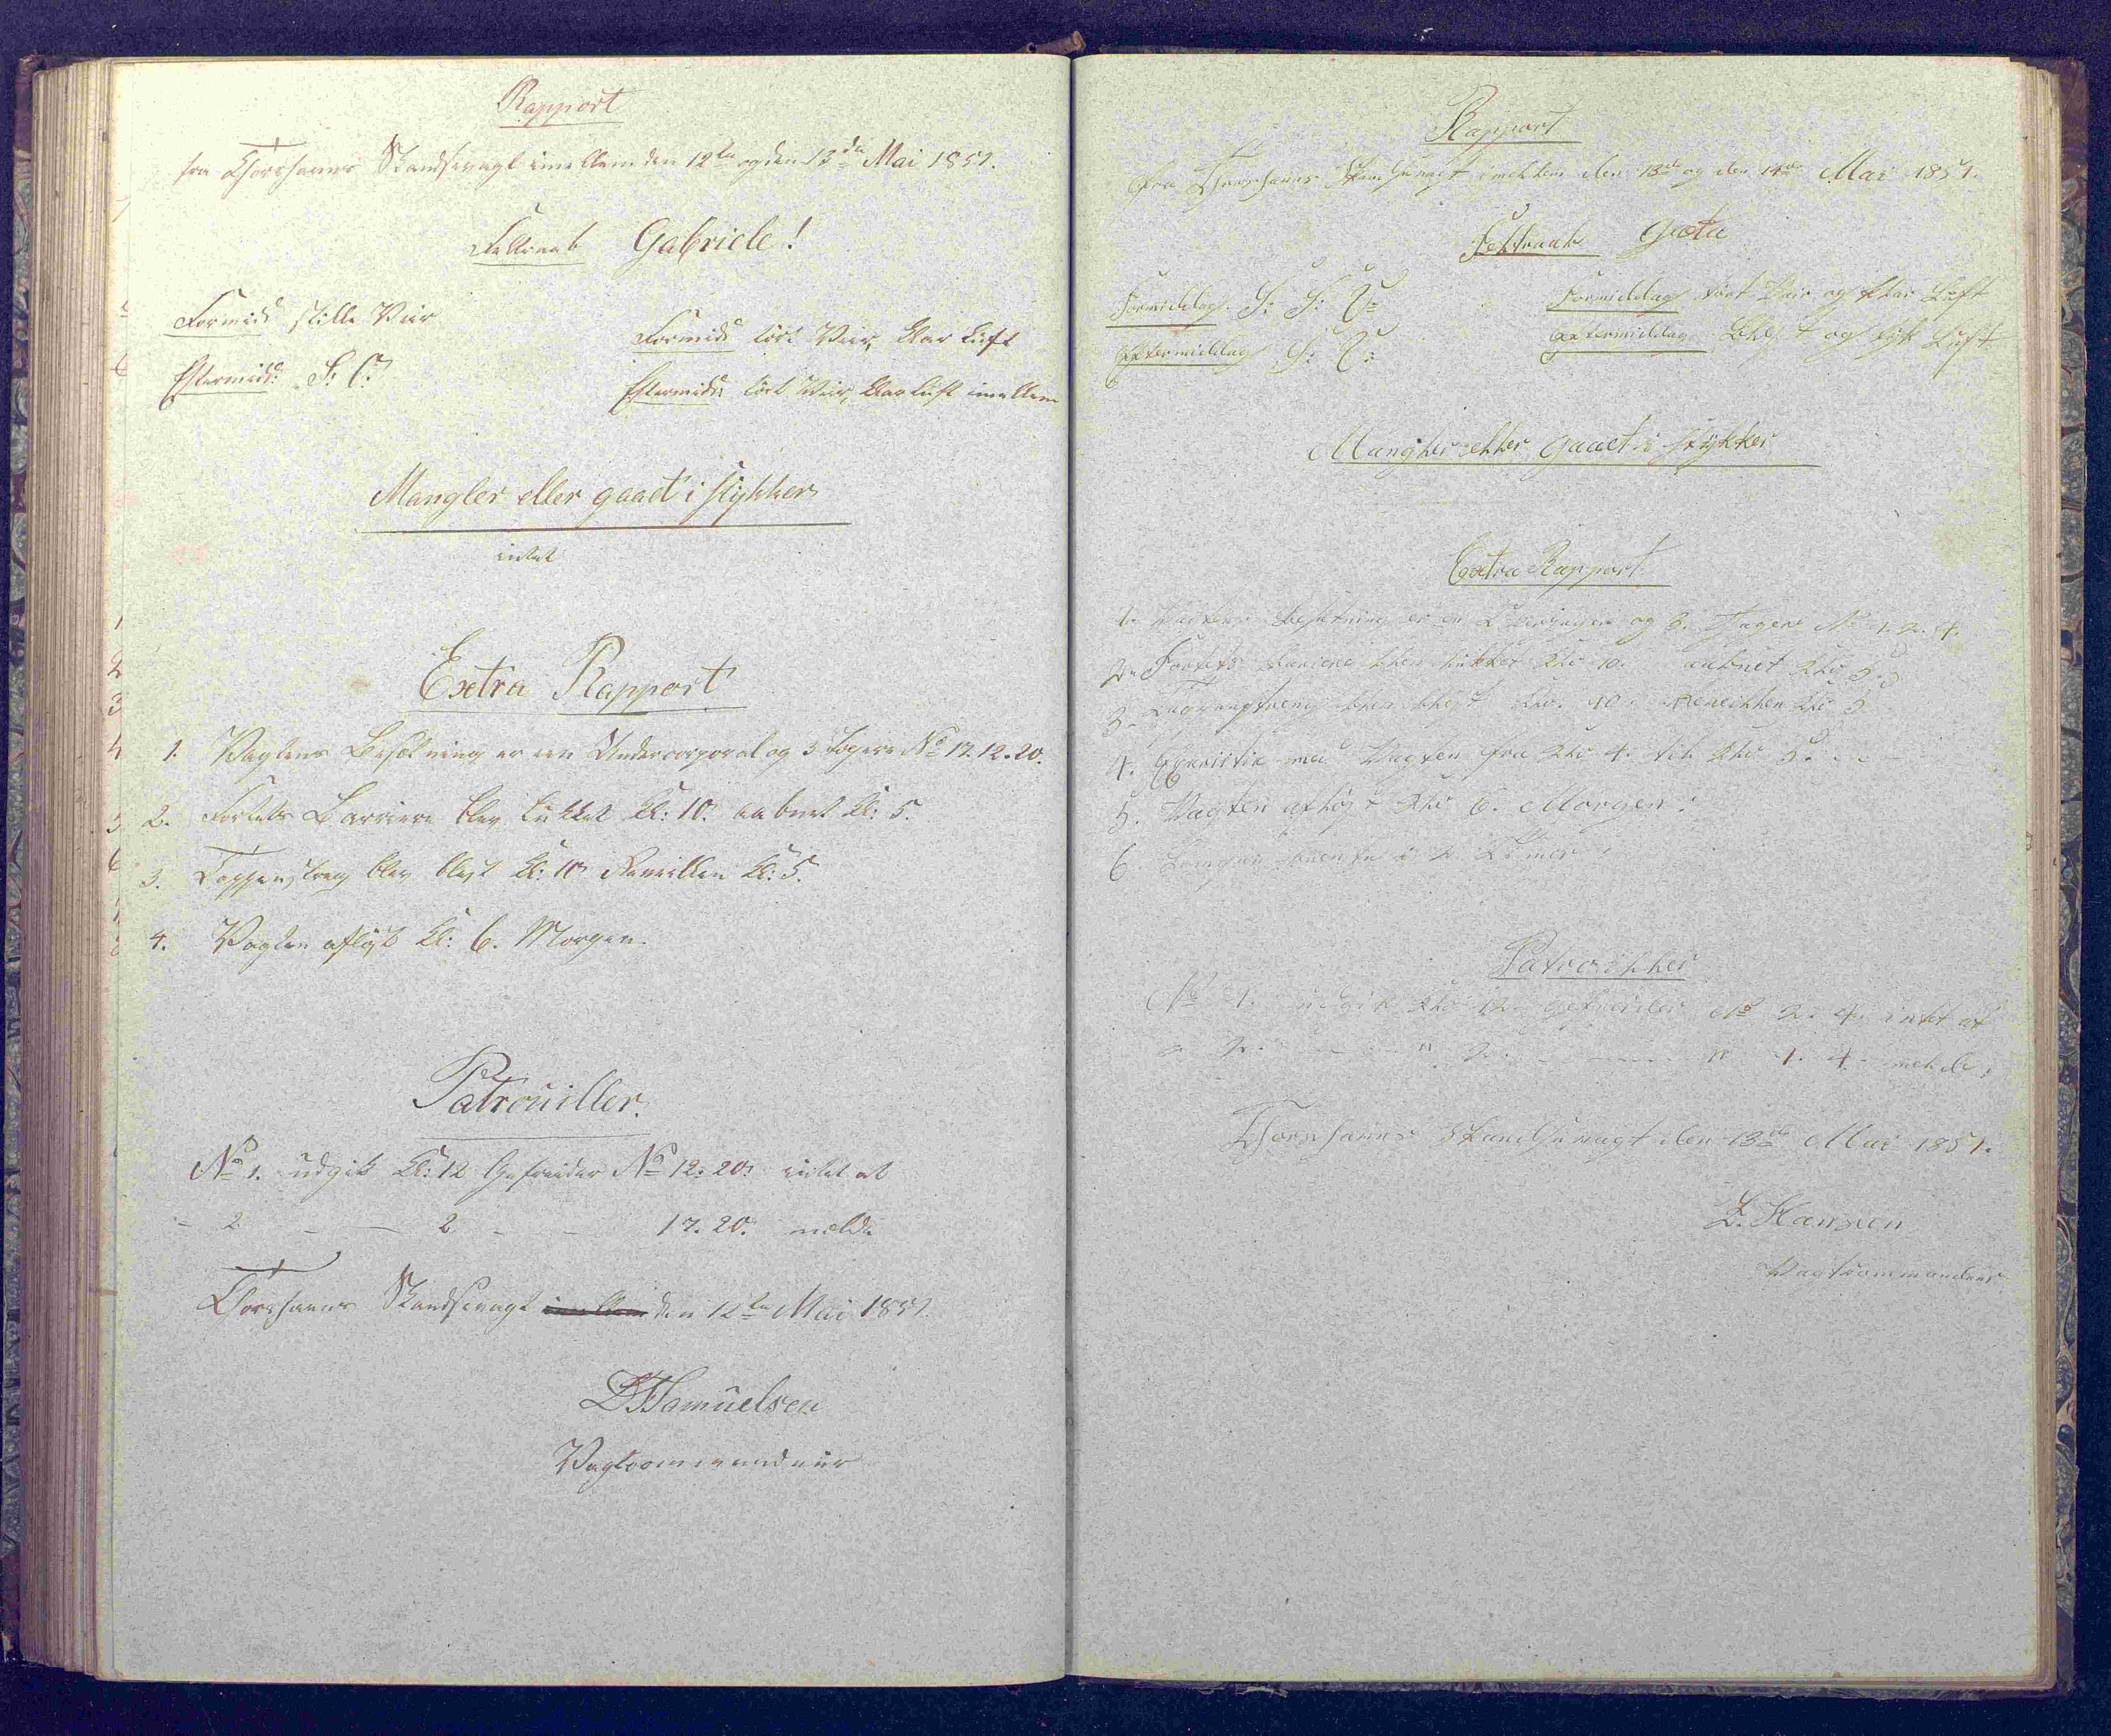 Rapport
fra Thorshavns Skandsevagt imellem den 12te og den 13de Mai 1857.
Feltraab Gabriele!
Formidd: stille Veir
Formidd: tört Veir, klar Luft
Eftermidd: S: O:
Eftermidd: tört Veir, klar Luft imellem
Mangler eller gaaet i stykker
intet
Extra Rapport
1. Vagtens Besætning er en Undercorporal og 3 Jægere No 17. 12. 20.
2. Fortets Barriere blev lukket Kl: 10. aabnet Kl: 5.
3. Tappenstreg blev blæst Kl: 10 Reveillen Kl: 5.
4. Vagten aflöst Kl: 6. Morgen.
Patrouiller.
No 1. udgik Kl: 12 Gefreider No 12. 20. intet at
- 2 - - 2 - - 17. 20. melde
Thorshavns Skandsevagt den 12te Mai 1857.
Samuelsen
Vagtcommandeur
Rapport
fra Thorshavns Skandsevagt imellem den 13de og den 14de Mai 1857.
Feltraab Gröta
Formiddag. S: S: O:
Formiddag tört Veir og klar Luft
Eftermiddag S: O:
Eftermiddag Blæst og tyk Luft
Mangler eller gaaet i stykker
Extra Rapport
1. Vagtens Besætning er en og 3. Jægere No 1. 2. 4.
2. Fortets Bariere blev lukket Klo 10. aabnet Klo 5.
3. blev blæst Klo. 10. Reveillen Klo 5
4. Exersitie med Vagten fra Klo 4. til Klo 5.
5. Vagten aflöst Klo 6. Morgen.
6. brente i 2 Timer
Patroiller
No 1. udgik Klo 12. Gefreider No 2. 4. intet at
" 2. - - " 2. - - " 1. 4. melde.
Thorshavns Skandsevagt den 13de Mai 1857.
Hansen
Vagtcommandeur